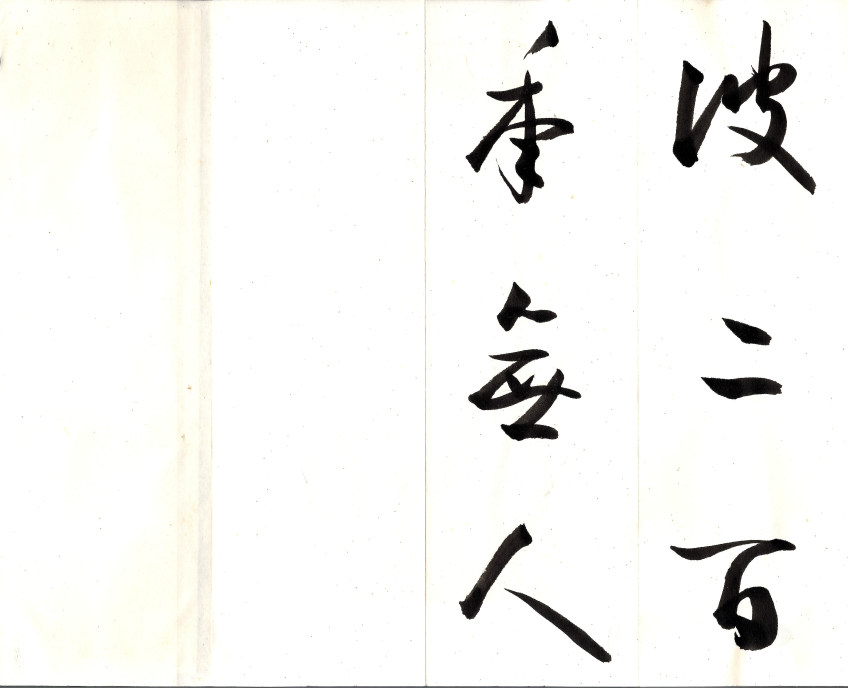 波二百
年無人